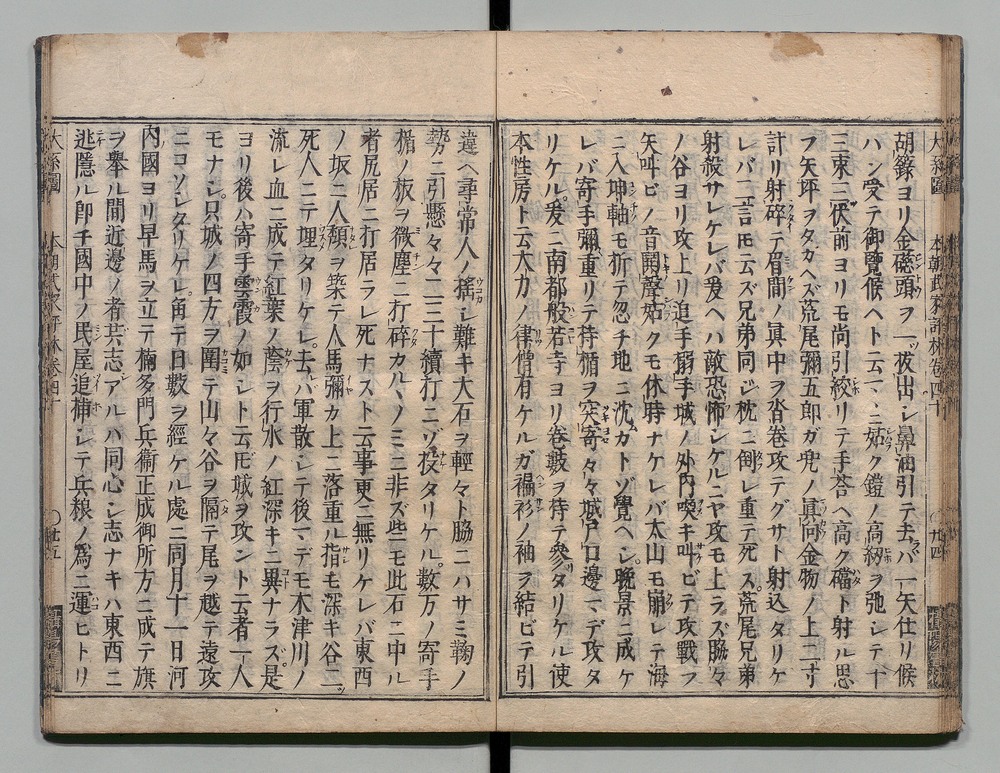 胡籙ヨリ金磁頭ヲ一ッ抜出シ鼻油引テ去バ一矢仕リ候
ハン受テ御覽候ヘト云マヽニ姑ク鎧ノ高紐ヲ弛シテ十
三束三伏前ヨリモ尚引絞リテ手答ヘ高ク礑ト射ル思
フ矢坪ヲタカヘズ荒尾彌五郎ガ兜ノ眞向金物ノ上二寸
計リ射碎テ眉間ノ眞中ヲ沓卷攻テグサト射込タリケ
レバ二言トモ云ズ兄弟同ジ枕ニ倒レ重テ死ス荒尾兄弟
射殺サレケレバ爰ヘハ敵恐怖シケルニヤ攻モ上ラズ脇々
ノ谷ヨリ攻上リ追手搦手城ノ外内喚キ叫ビテ攻戰フ
矢叫ビノ音鬨聲姑クモ休時ナケレバ太山モ崩レテ海
ニ入坤軸モ折テ忽チ地ニ沈カトゾ覺ヘシ晩景ニ成ケ
レバ寄手彌重リテ持楯ヲ突寄々々城戸口邊マデ攻タ
リケル爰ニ南都般若寺ヨリ卷數ヲ持テ參タリケル使
本性房ト云大力ノ律僧有ケルガ褊衫ノ袖ヲ結ビテ引
違ヘ尋常人ノ搖シ難キ大石ヲ輕々ト脇ニハサミ鞠ノ
勢ニ引懸々々二三十續打ニゾ投タリケル數万ノ寄手
楯ノ板ヲ微塵ニ打碎カルヽノミニ非ズ些モ此石ニ中ル
者尻居ニ打居ラレ死ナスト云事更ニ無リケレバ東西
ノ坂ニ人頽ヲ築テ人馬彌カ上ニ落重ル指モ深キ谷二ッ
死人ニテ埋タリケレ去バ軍散シテ後マデモ木津川ノ
流レ血ニ成テ紅葉ノ蔭ヲ行水ノ紅深キニ異ナラズ是
ヨリ後ハ寄手雲霞ノ如シト云トモ城ヲ攻ント云者一人
モナシ只城ノ四方ヲ圍テ山々谷ヲ隔テ尾ヲ越テ遠攻
ニコソシタリケレ角テ日數ヲ經ケル處ニ同月十一日河
内國ヨリ早馬ヲ立テ楠多門兵衞正成御所方ニ成テ旗
ヲ擧ル間近邊ノ者共志アルハ同心シ志ナキハ東西ニ
逃隱ル卽チ國中ノ民屋追捕シテ兵粮ノ爲ニ運ヒトリ